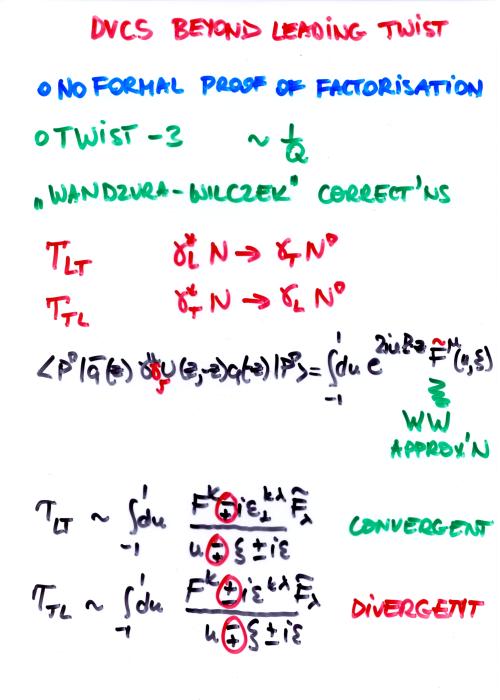 DVCS BEYOND LEADING TWIST
o NO FORMAL PROOF OF FACTORISATION
o TWIST -3 ~ 1/Q
„WANDZURA-WILCZEK" CORRECT'NS
T_LT γ*_L N → γ_T N'
T_TL γ*_T N → γ_L N'
<P'|q̄(z) γ^μ γ_5 U(z,-z) q(-z)|P> = ∫_{-1}^{1} du e^{2iuP·z} F̃^μ(u,ξ)
WW
APPROX'N
T_LT ~ ∫_{-1}^{1} du (F^k ∓ iε_⊥^{kλ} F̃_λ)/(u ∓ ξ ± iε) CONVERGENT
T_TL ~ ∫_{-1}^{1} du (F^k ± iε^{kλ} F̃_λ)/(u ∓ ξ ± iε) DIVERGENT